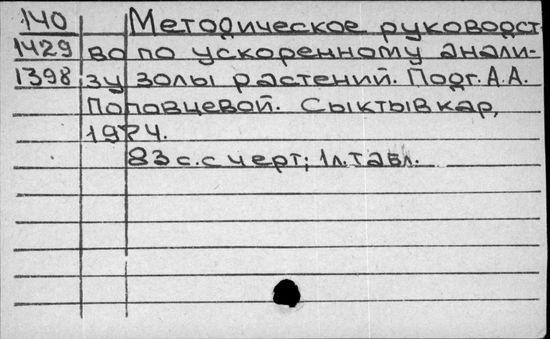 140 Методическое руководст-
1429 во по ускоренному анали-
1398 зу золы растений. Подг. А.А.
Поповцевой. Сыктывкар,
1974.
83 с. с черт; 1 л. табл.